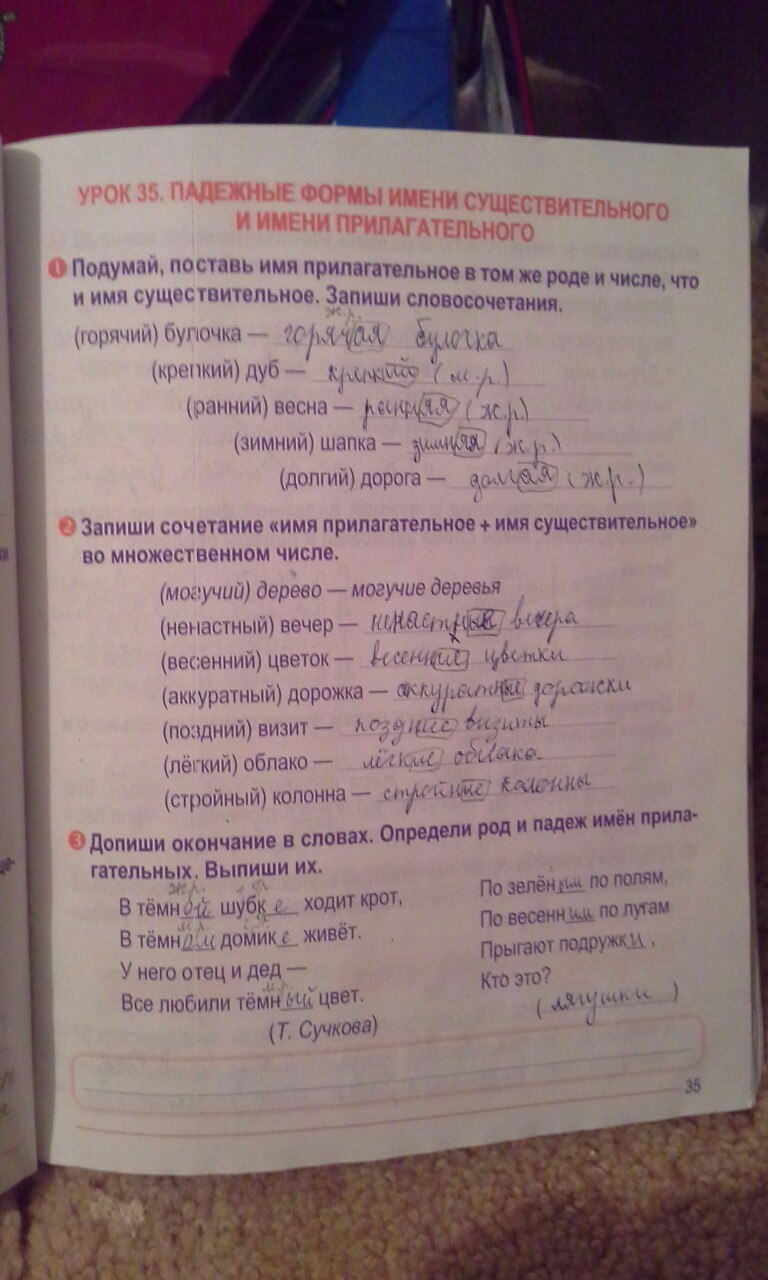 УРОК 35. ПАДЕЖНЫЕ ФОРМЫ ИМЕНИ СУЩЕСТВИТЕЛЬНОГО
И ИМЕНИ ПРИЛАГАТЕЛЬНОГО
1 Подумай, поставь имя прилагательное в том же роде и числе, что
и имя существительное. Запиши словосочетания.
ж.р.
(горячий) булочка — горячая булочка
(крепкий) дуб — крепкий (м.р.)
(ранний) весна — ранняя (ж.р)
(зимний) шапка — зимняя (ж.р.)
(долгий) дорога — долгая (ж.р.)
2 Запиши сочетание «имя прилагательное + имя существительное»
во множественном числе.
(могучий) дерево — могучие деревья
(ненастный) вечер — ненастные вечера
(весенний) цветок — весенние цветки
(аккуратный) дорожка — аккуратные дорожки
(поздний) визит — поздние визиты
(лёгкий) облако — лёгкие облака
(стройный) колонна — стройные колонны
3 Допиши окончание в словах. Определи род и падеж имён прила-
гательных. Выпиши их.
ж.р.
В тёмной шубке ходит крот,
м.р.
В тёмном домике живёт.
У него отец и дед —
м.р.
Все любили тёмный цвет.
(Т. Сучкова)
По зелёным по полям,
По весенним по лугам
Прыгают подружки.
Кто это?
(лягушки)
35